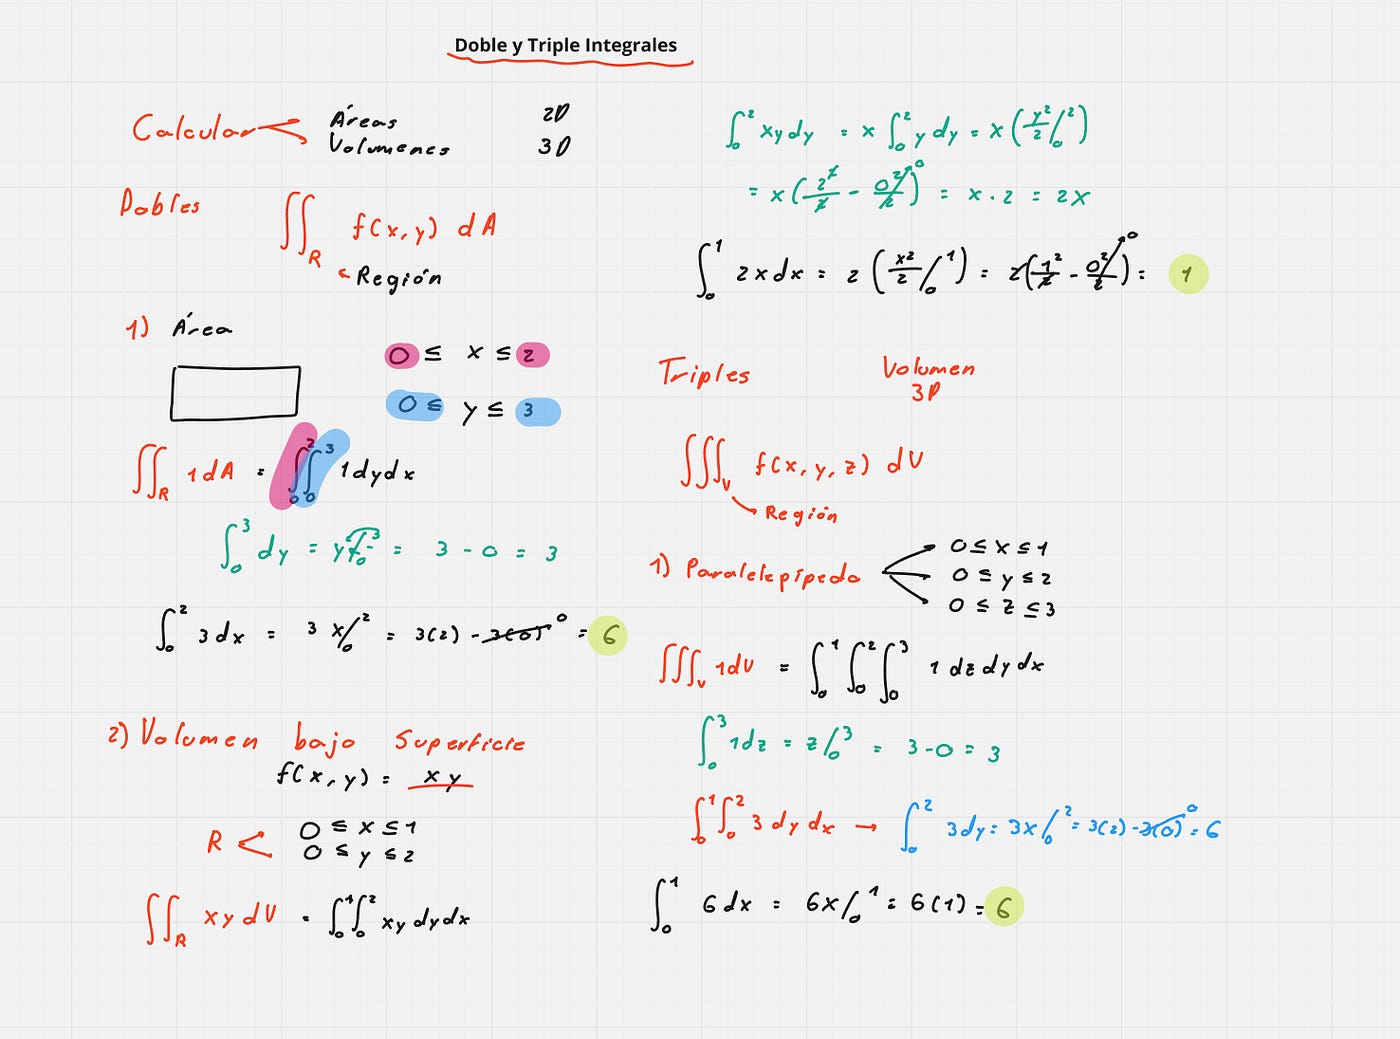 Doble y Triple Integrales
Calcular Áreas 2D
Volumenes 3D
Dobles ∬_R f(x,y) dA
Región
1) Área
0 ≤ x ≤ 2
0 ≤ y ≤ 3
∬_R 1 dA = ∫_0^2 ∫_0^3 1 dy dx
∫_0^3 dy = y/_0^3 = 3 - 0 = 3
∫_0^2 3 dx = 3x/_0^2 = 3(2) - 3(0) 0 = 6
2) Volumen bajo Superficie
f(x,y) = xy
R 0 ≤ x ≤ 1
0 ≤ y ≤ 2
∬_R xy dV = ∫_0^1 ∫_0^2 xy dy dx
∫_0^2 xy dy = x ∫_0^2 y dy = x (y²/2 /_0^2)
= x (2²/2 - 0²/2 0) = x · 2 = 2x
∫_0^1 2x dx = 2 (x²/2 /_0^1) = 2(1²/2 - 0²/2 0) = 1
Triples Volumen
3D
∭_V f(x,y,z) dV
Región
1) Paralelepípedo 0 ≤ x ≤ 1
0 ≤ y ≤ 2
0 ≤ z ≤ 3
∭_V 1 dV = ∫_0^1 ∫_0^2 ∫_0^3 1 dz dy dx
∫_0^3 1 dz = z/_0^3 = 3 - 0 = 3
∫_0^1 ∫_0^2 3 dy dx → ∫_0^2 3 dy = 3x/_0^2 = 3(2) - 3(0) 0 = 6
∫_0^1 6 dx = 6x/_0^1 = 6(1) = 6